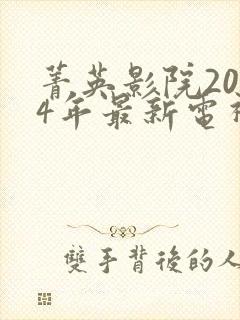 菁英影院20
4年最新電
雙手背後的人